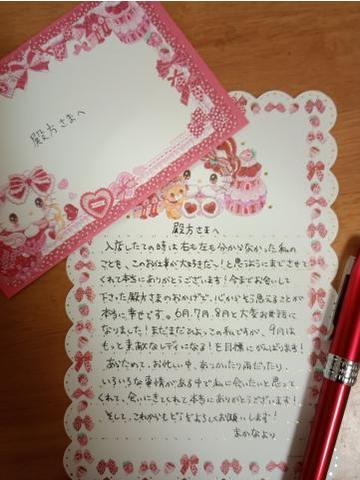 殿方さまへ
殿方さまへ
入店したての時は右も左も分からなかった私の
ことを、このお仕事が大好きだ〜!と思うようにまでさせて
くれて本当にありがとうございます!今までお会いして
下さった殿方さまのおかげで、心からそう思えることが
本当に幸せです。6月、7月、8月と大変お世話に
なりました!まだまだひよっこの私ですが、9月は
もっと素敵なレディになる!を目標にがんばります!
あらためて、お忙しい中、あつかったり雨だったり、
いろいろな事情がある中で私に会いたいと思って
くれて、会いにきてくれて本当にありがとうございます!
そして、これからもどうぞよろしくお願いします!
まかなより